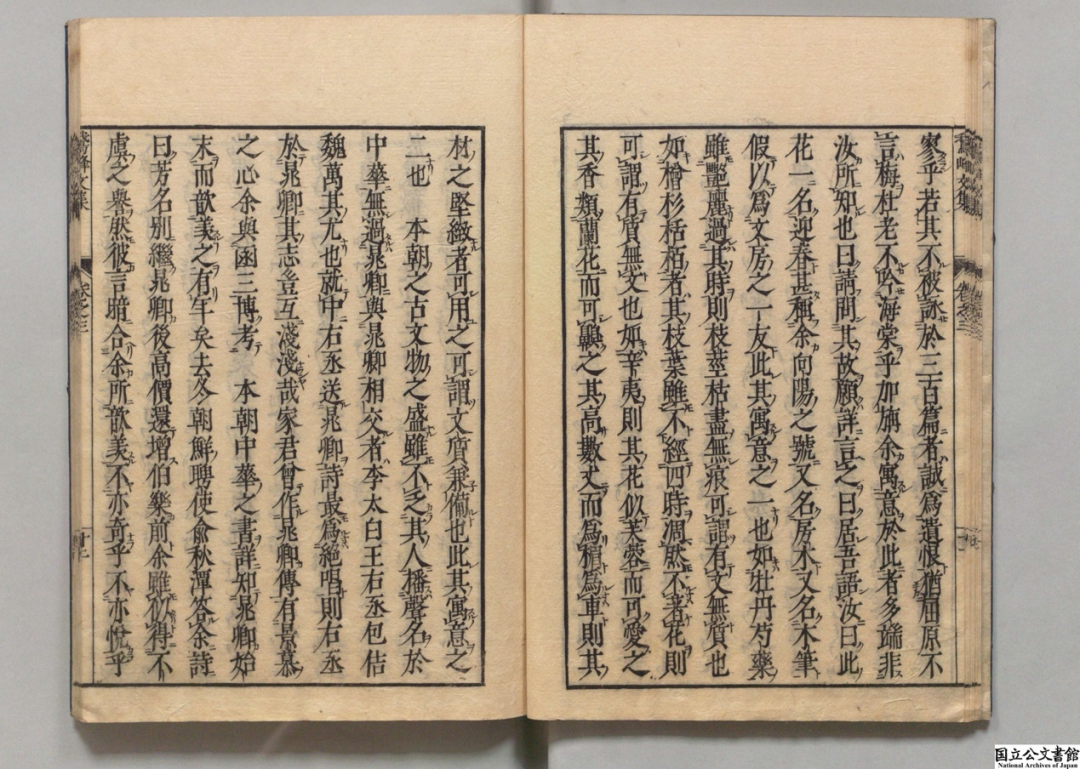 家乎若其不被詠於三百篇者誠爲遺恨猶屈原不
言梅杜老不吟海棠乎加旃余寓意於此者多端非
汝所知也曰請問其故願詳言之曰居吾語汝曰此
花一名迎春甚稱余向陽之號又名房木又名木筆
假以爲文房之一友此其寓意之一也如牡丹芍藥
雖艷麗過其時則枝莖枯盡無痕可謂有文無質也
如檜杉栝栢者其枝葉雖不經四時凋然不著花則
可謂有質無文也如辛夷則其花似芙蓉而可愛之
其香類蘭花而可齅之其高數丈而爲楣爲車則其
材之堅緻者可用之可謂文質兼備也此其寓意之
二也 本朝之古文物之盛雖不乏其人播聲名於
中華無過晁卿與晁卿相交者李太白王右丞包佶
魏萬其尤也就中右丞送晁卿詩最爲絶唱則右丞
於晁卿其志豈互淺淺哉家君曾作晁卿傳有景慕
之心余與函三博考 本朝中華之書詳知晁卿始
末而歆美之有年矣去冬朝鮮聘使兪秋潭答余詩
曰芳名別繼晁卿後高價還增伯樂前余雖似得不
虞之譽然彼言暗合余所歆美不亦奇乎不亦悅乎
卷之三
十二
国立公文書館
National Archives of Japan